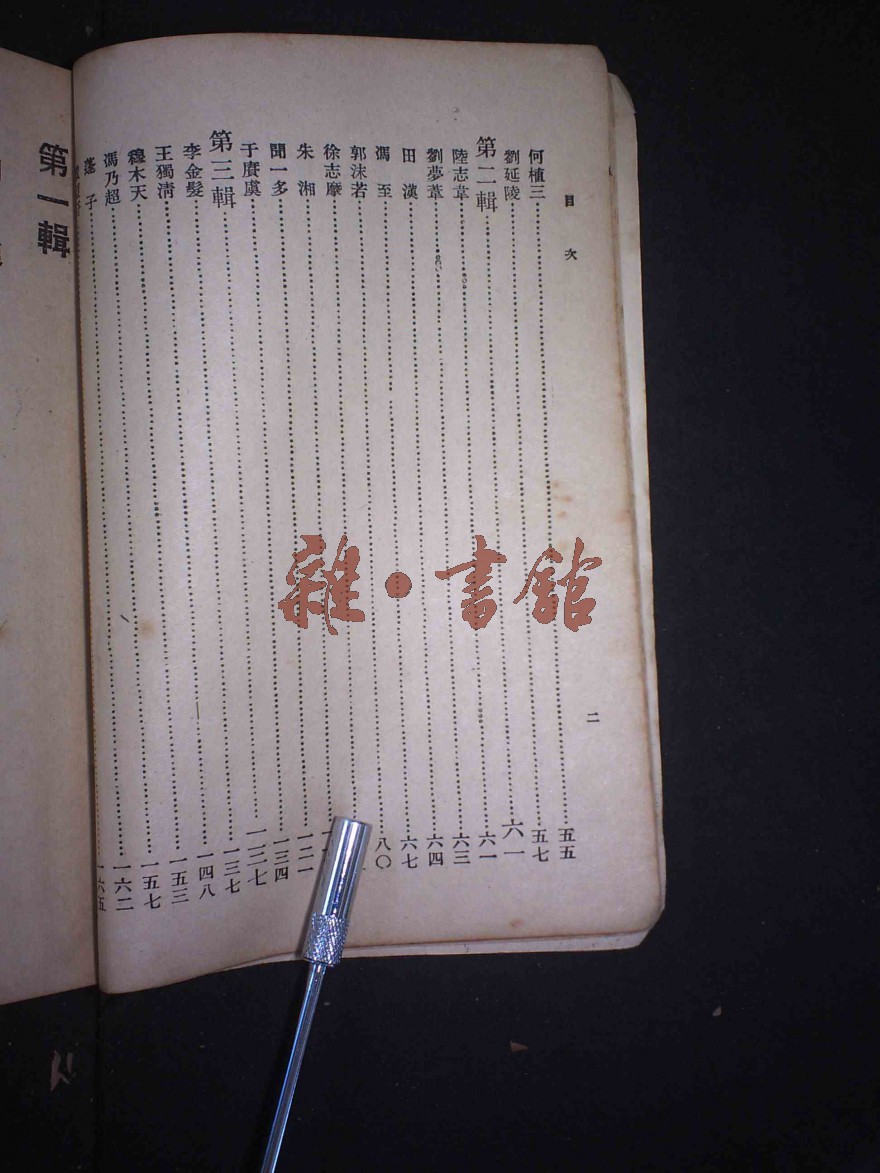 目次
二
何植三 五五
劉延陵 五七
第二輯 六一
陸志韋 六一
劉夢葦 六三
田漢 六四
馮至 六七
郭沫若 八〇
徐志摩
朱湘
聞一多 一二一
于賡虞 一三四
第三輯 一三七
李金髮 一三七
王獨清 一四八
穆木天 一五三
馮乃超 一五七
蓬子 一六二
一六五
第一輯
雜·書館